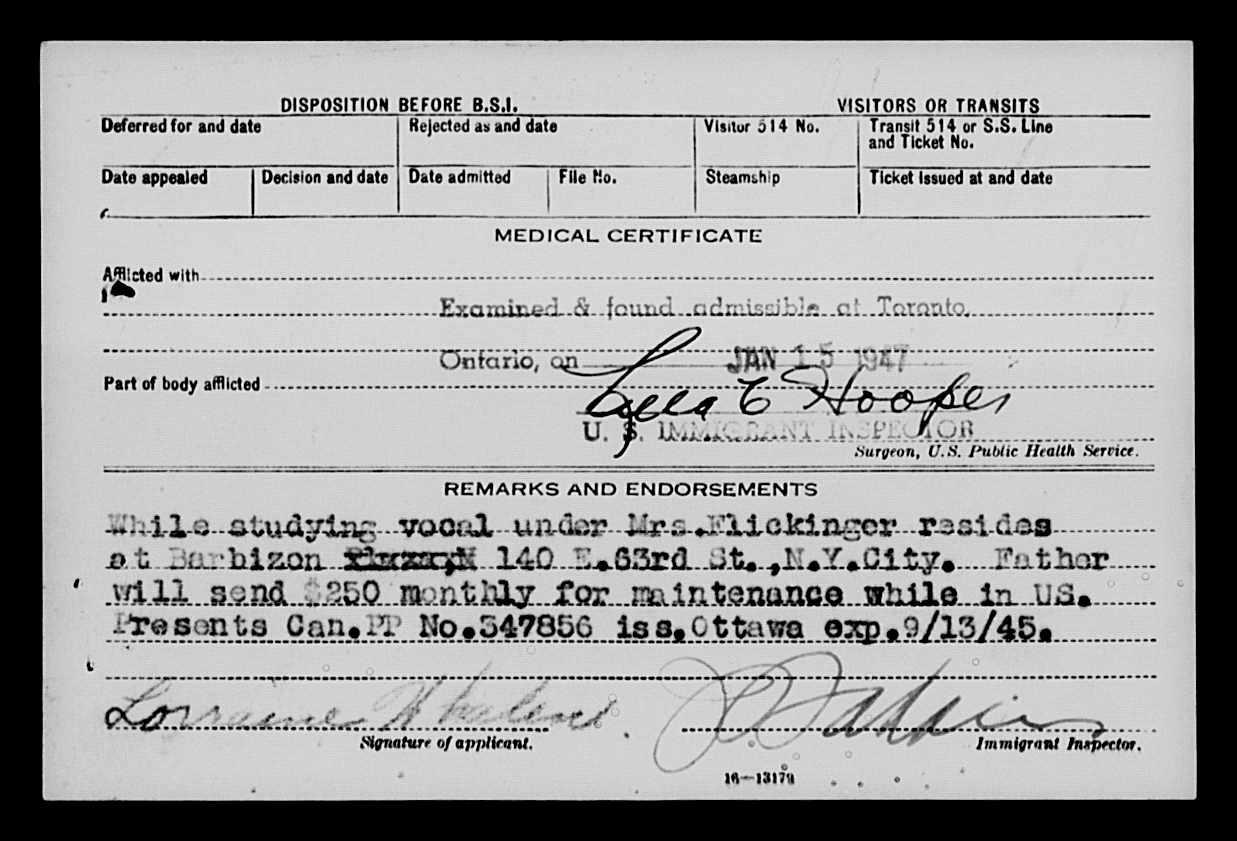 DISPOSITION BEFORE B.S.I. VISITORS OR TRANSITS
Deferred for and date Rejected as and date Visitor 514 No. Transit 514 or S.S. Line and Ticket No.
Date appealed Decision and date Date admitted File No. Steamship Ticket issued at and date
MEDICAL CERTIFICATE
Afflicted with
Examined & found admissible at Toronto,
Ontario, on JAN 15 1947
Part of body afflicted
C Hooper
U. S. IMMIGRANT INSPECTOR
Surgeon, U.S. Public Health Service.
REMARKS AND ENDORSEMENTS
While studying vocal under Mrs.Flickinger resides
at Barbizon 140 E.63rd St.,N.Y.City. Father
will send $250 monthly for maintenance while in US.
Presents Can.PP No.347856 iss.Ottawa exp.9/13/45.
Lorraine
Signature of applicant. Immigrant Inspector.
16—13179